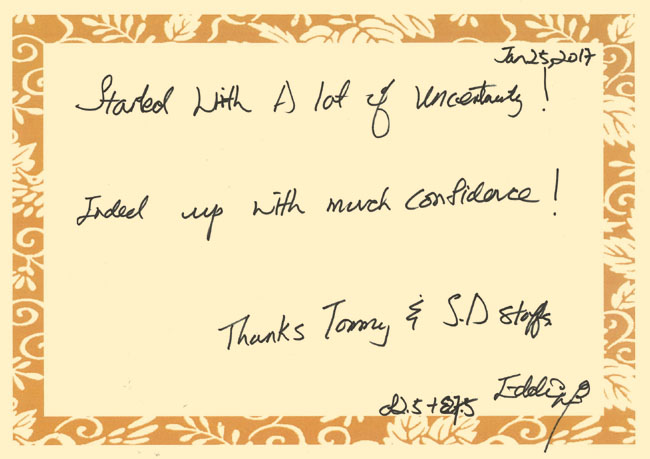 Jan 25, 2017
Started With A lot of Uncertainty!
Ended up with much confidence!
Thanks Tommy & S.D staffs
Eddie